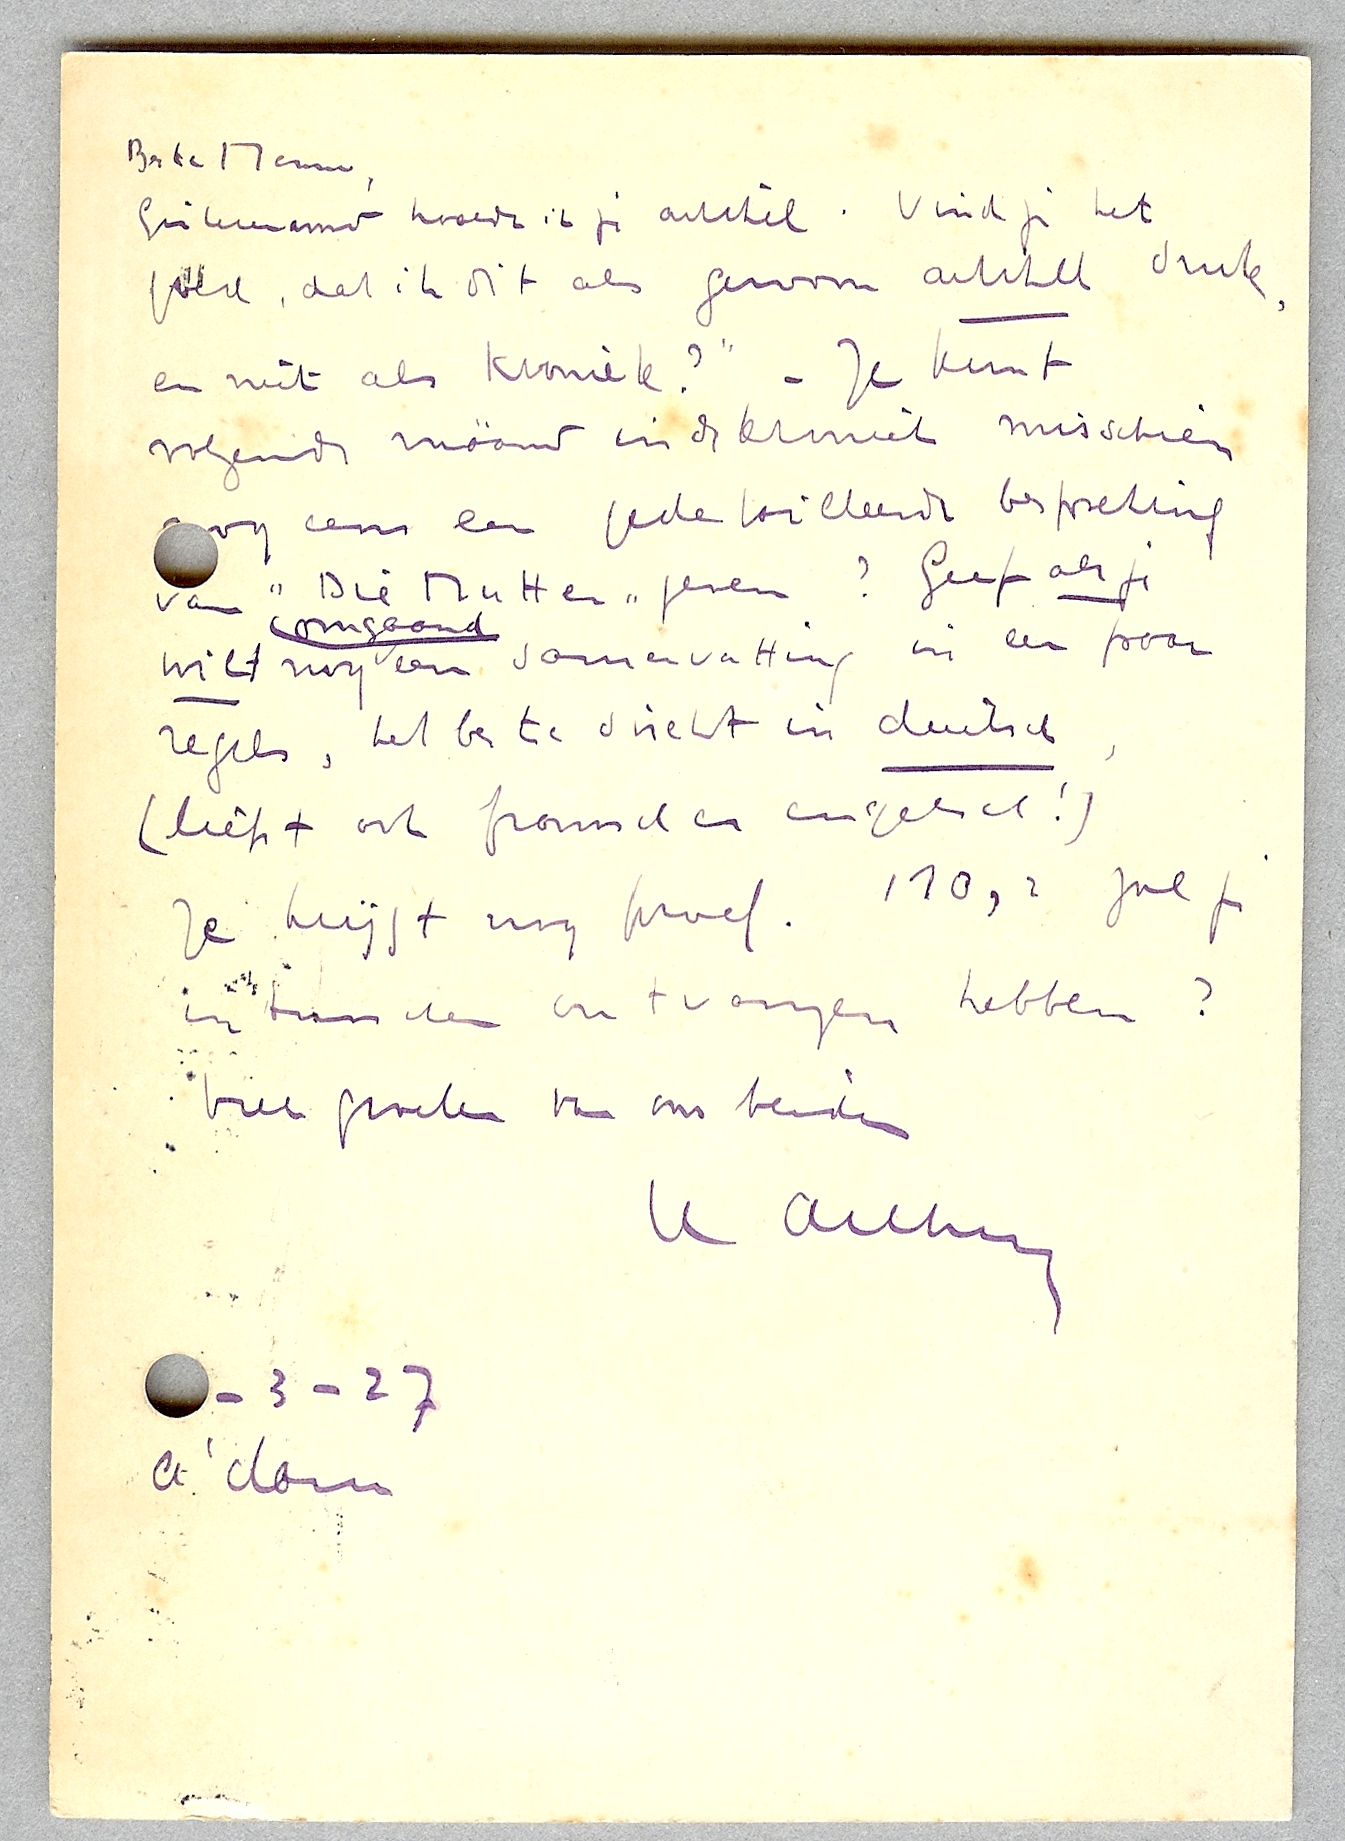 Beste Menno,
Gisterenavond kwam je artikel. Vind je het
goed, dat ik dit als gewoon artikel druk,
en niet als kroniek?" - Je kunt
volgende måånd in de kroniek misschien
nog eens een gedetailleerde bespreking
van "Die Mutter" geven? Geef als je
omgaand
wilt nog een samenvatting in een paar
regels, het beste direkt in deutsch,
(liefst ook fransch en engelsch!)
Je krijgt nog proef. i10, 2 zul je
intusschen ontvangen hebben?
veel groeten van ons beiden
Je Arthur
-3-27
a'dam